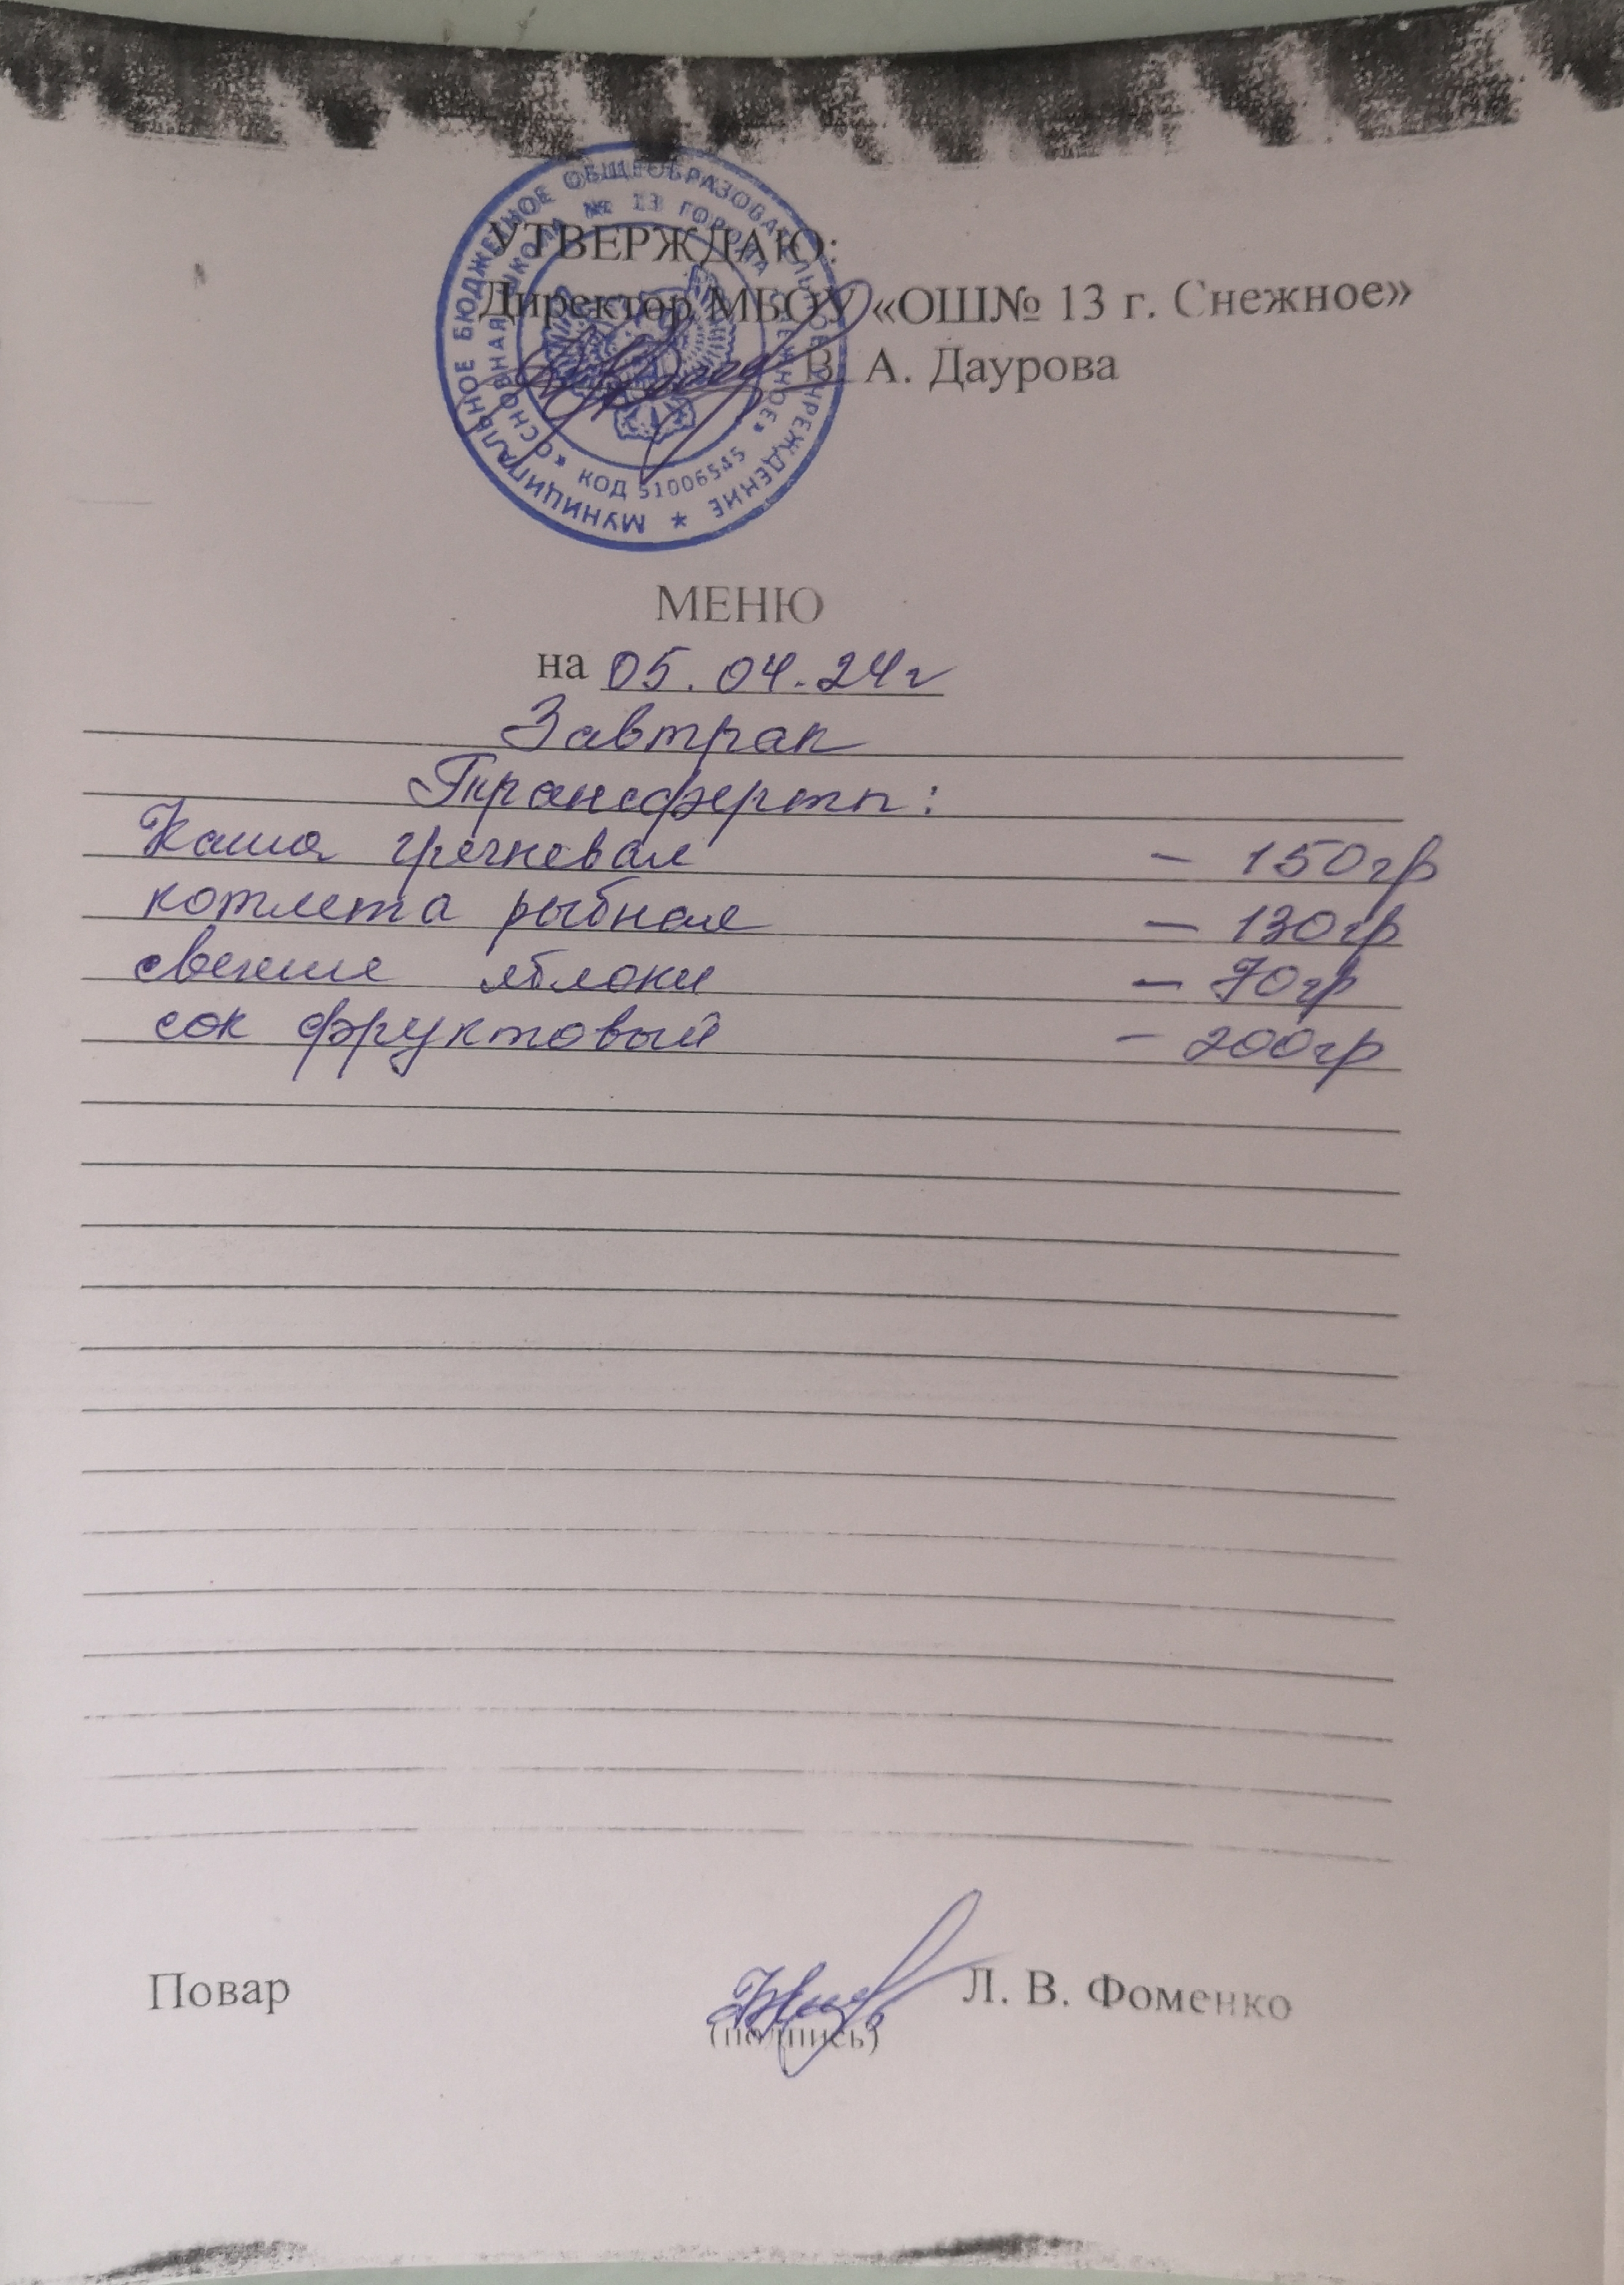 МУНИЦИПАЛЬНОЕ БЮДЖЕТНОЕ ОБЩЕОБРАЗОВАТЕЛЬНОЕ УЧРЕЖДЕНИЕ *
«ОСНОВНАЯ ШКОЛА № 13 ГОРОДА СНЕЖНОЕ»
КОД 51006545
УТВЕРЖДАЮ:
Директор МБОУ «ОШ№ 13 г. Снежное»
В. А. Даурова
МЕНЮ
на 05.04.24г
Завтрак
Трансферты:
Каша гречневая – 150гр
котлета рыбная – 130гр
свежие яблоки – 70гр
сок фруктовый – 200гр
Повар Л. В. Фоменко
(подпись)